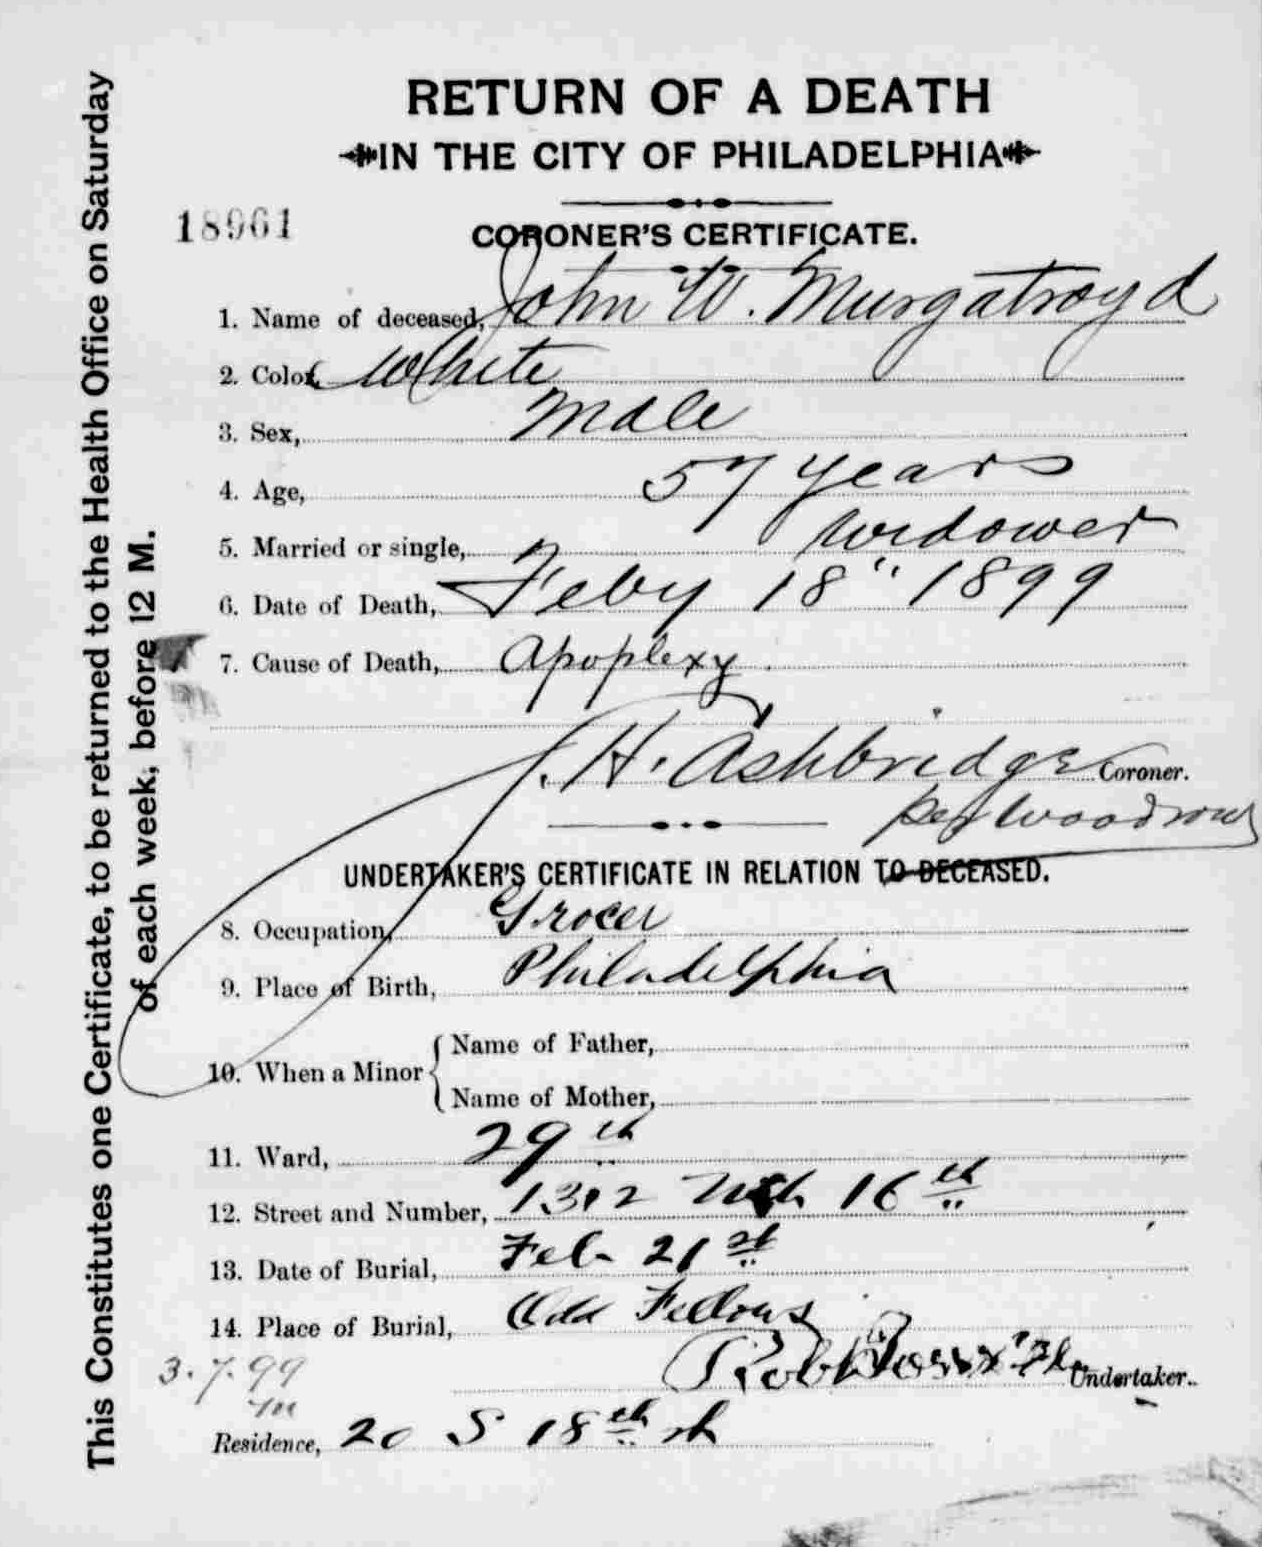 RETURN OF A DEATH
IN THE CITY OF PHILADELPHIA
18961
CORONER'S CERTIFICATE.
1. Name of deceased, John W. Murgatroyd
2. Color, White
3. Sex, Male
4. Age, 57 years
5. Married or single, Widower
6. Date of Death, Feby 18" 1899
7. Cause of Death, Apoplexy
H. Ashbridge Coroner.
per Woodrow
UNDERTAKER'S CERTIFICATE IN RELATION TO DECEASED.
8. Occupation, Grocer
9. Place of Birth, Philadelphia
10. When a Minor
Name of Father,
Name of Mother,
11. Ward, 29th
12. Street and Number, 1312 16th
13. Date of Burial, Feb 21st
14. Place of Burial, Odd Fellows
Undertaker.
3.7.99
Residence, 20 S 18th st
This Constitutes one Certificate, to be returned to the Health Office on Saturday
of each week, before 12 M.